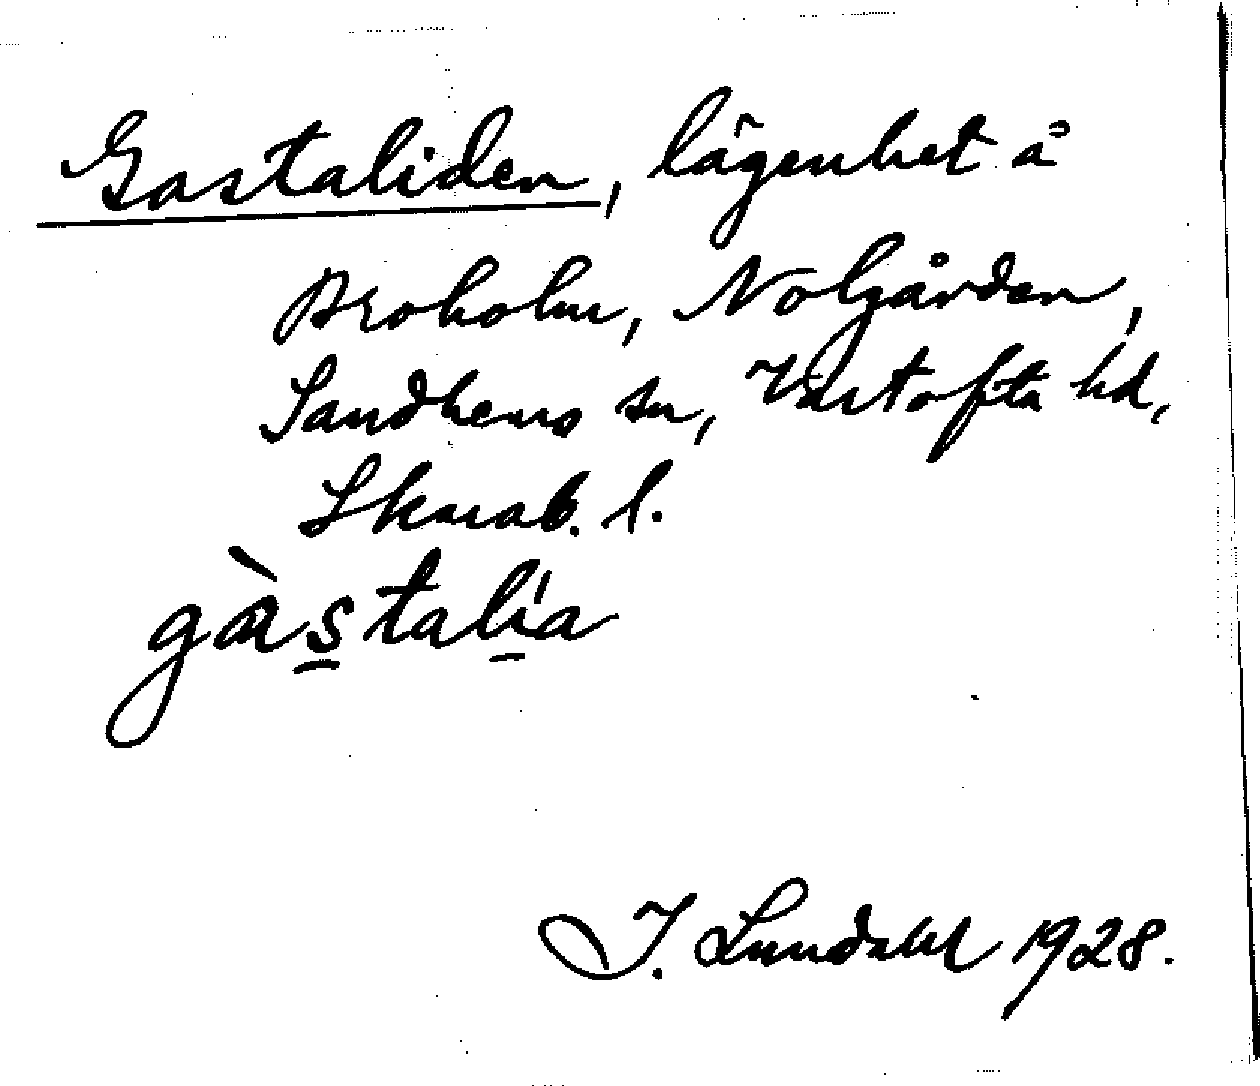 Gastaliden, lägenhet å
Broholm, Nolgården,
Sandhems sn, Vartofta hd,
Skarab. l.
gàstalia
I. Lundahl 1928.